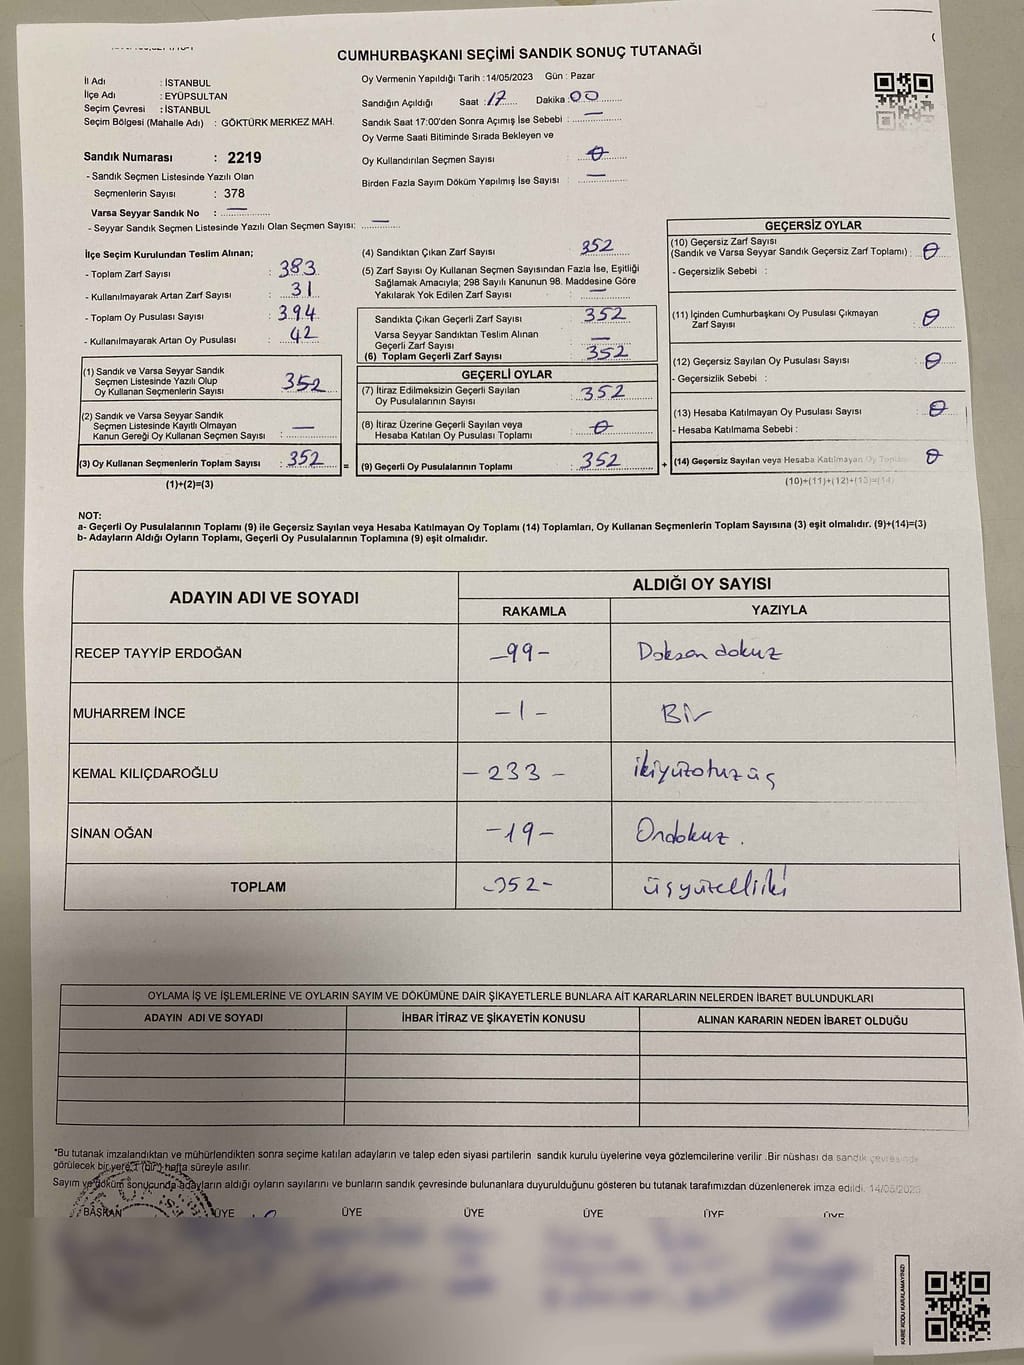 CUMHURBAŞKANI SEÇİMİ SANDIK SONUÇ TUTANAĞI
İl Adı : İSTANBUL
İlçe Adı : EYÜPSULTAN
Seçim Çevresi : İSTANBUL
Seçim Bölgesi (Mahalle Adı) : GÖKTÜRK MERKEZ MAH.
Oy Vermenin Yapıldığı Tarih : 14/05/2023 Gün : Pazar
Sandığın Açıldığı Saat : 17 Dakika : 00
Sandık Saat 17:00'den Sonra Açımış İse Sebebi : —
Oy Verme Saati Bitiminde Sırada Bekleyen ve
Oy Kullandırılan Seçmen Sayısı : 0
Birden Fazla Sayım Döküm Yapılmış İse Sayısı : —
Sandık Numarası : 2219
- Sandık Seçmen Listesinde Yazılı Olan
Seçmenlerin Sayısı : 378
Varsa Seyyar Sandık No : —
- Seyyar Sandık Seçmen Listesinde Yazılı Olan Seçmen Sayısı: —
İlçe Seçim Kurulundan Teslim Alınan;
- Toplam Zarf Sayısı : 383
- Kullanılmayarak Artan Zarf Sayısı : 31
- Toplam Oy Pusulası Sayısı : 394
- Kullanılmayarak Artan Oy Pusulası : 42
(1) Sandık ve Varsa Seyyar Sandık
Seçmen Listesinde Yazılı Olup
Oy Kullanan Seçmenlerin Sayısı : 352
(2) Sandık ve Varsa Seyyar Sandık
Seçmen Listesinde Kayıtlı Olmayan
Kanun Gereği Oy Kullanan Seçmen Sayısı : —
(3) Oy Kullanan Seçmenlerin Toplam Sayısı : 352
(1)+(2)=(3)
(4) Sandıktan Çıkan Zarf Sayısı : 352
(5) Zarf Sayısı Oy Kullanan Seçmen Sayısından Fazla İse, Eşitliği
Sağlamak Amacıyla; 298 Sayılı Kanunun 98. Maddesine Göre
Yakılarak Yok Edilen Zarf Sayısı : —
Sandıkta Çıkan Geçerli Zarf Sayısı : 352
Varsa Seyyar Sandıktan Teslim Alınan
Geçerli Zarf Sayısı : —
(6) Toplam Geçerli Zarf Sayısı : 352
GEÇERLİ OYLAR
(7) İtiraz Edilmeksizin Geçerli Sayılan
Oy Pusulalarının Sayısı : 352
(8) İtiraz Üzerine Geçerli Sayılan veya
Hesaba Katılan Oy Pusulaları Toplamı : 0
= (9) Geçerli Oy Pusulalarının Toplamı : 352 +
GEÇERSİZ OYLAR
(10) Geçersiz Zarf Sayısı
(Sandık ve Varsa Seyyar Sandık Geçersiz Zarf Toplamı) : 0
- Geçersizlik Sebebi :
(11) İçinden Cumhurbaşkanı Oy Pusulası Çıkmayan
Zarf Sayısı : 0
(12) Geçersiz Sayılan Oy Pusulası Sayısı : 0
- Geçersizlik Sebebi :
(13) Hesaba Katılmayan Oy Pusulası Sayısı : 0
- Hesaba Katılmama Sebebi :
(14) Geçersiz Sayılan veya Hesaba Katılmayan Oy Toplamı 0
(10)+(11)+(12)+(13)=(14)
NOT:
a- Geçerli Oy Pusulalarının Toplamı (9) ile Geçersiz Sayılan veya Hesaba Katılmayan Oy Toplamı (14) Toplamları, Oy Kullanan Seçmenlerin Toplam Sayısına (3) eşit olmalıdır. (9)+(14)=(3)
b- Adayların Aldığı Oyların Toplamı, Geçerli Oy Pusulalarının Toplamına (9) eşit olmalıdır.
ADAYIN ADI VE SOYADI ALDIĞI OY SAYISI
RAKAMLA YAZIYLA
RECEP TAYYİP ERDOĞAN -99- Doksan dokuz
MUHARREM İNCE -1- Bir
KEMAL KILIÇDAROĞLU -233- ikiyüzotuzüç
SİNAN OĞAN -19- Ondokuz.
TOPLAM -352- üçyüzelliiki
OYLAMA İŞ VE İŞLEMLERİNE VE OYLARIN SAYIM VE DÖKÜMÜNE DAİR ŞİKAYETLERLE BUNLARA AİT KARARLARIN NELERDEN İBARET BULUNDUKLARI
ADAYIN ADI VE SOYADI İHBAR İTİRAZ VE ŞİKAYETİN KONUSU ALINAN KARARIN NEDEN İBARET OLDUĞU
*Bu tutanak imzalandıktan ve mühürlendikten sonra seçime katılan adayların ve talep eden siyasi partilerin sandık kurulu üyelerine veya gözlemcilerine verilir .Bir nüshası da sandık çevresinde
görülecek bir yere 1 (bir) hafta süreyle asılır.
Sayım ve döküm sonucunda adayların aldığı oyların sayılarını ve bunların sandık çevresinde bulunanlara duyurulduğunu gösteren bu tutanak tarafımızdan düzenlenerek imza edildi. 14/05/2023
BAŞKAN ÜYE ÜYE ÜYE ÜYE ÜYE ÜYE
KARE KODU KARALAMAYINIZ!